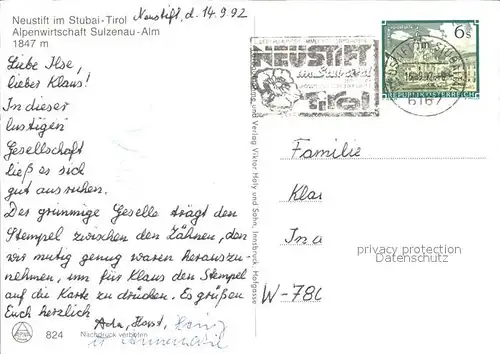 Neustift im Stubai-Tirol
Alpenwirtschaft Sulzenau-Alm
1847 m
Neustift, d. 14.9.92
Liebe Ilse,
lieber Klaus!
In dieser
lustigen
Gesellschaft
ließ es sich
gut ausruhen.
Der grimmige Geselle trägt den
Stempel zwischen den Zähnen, den
wir mutig genug waren herauszu-
nehmen, um für Klaus den Stempel
auf die Karte zu drücken. Es grüßen
Euch herzlich
Ada, Horst, Heinz
824 Nachdruck verboten
und Verlag Viktor Holy und Sohn, Innsbruck, Hofgasse
NEUSTIFT
im Stubaital
Tirol
6 s
REPUBLIK ÖSTERREICH
6167
Familie
Kla
In a
W-780
privacy protection
Datenschutz